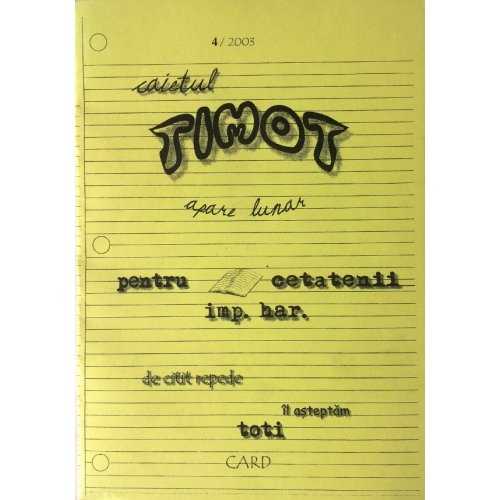 4 / 2003
caietul
TIMOT
apare lunar
pentru cetatenii
imp. har.
de citit repede
îl așteptăm
toti
CARD